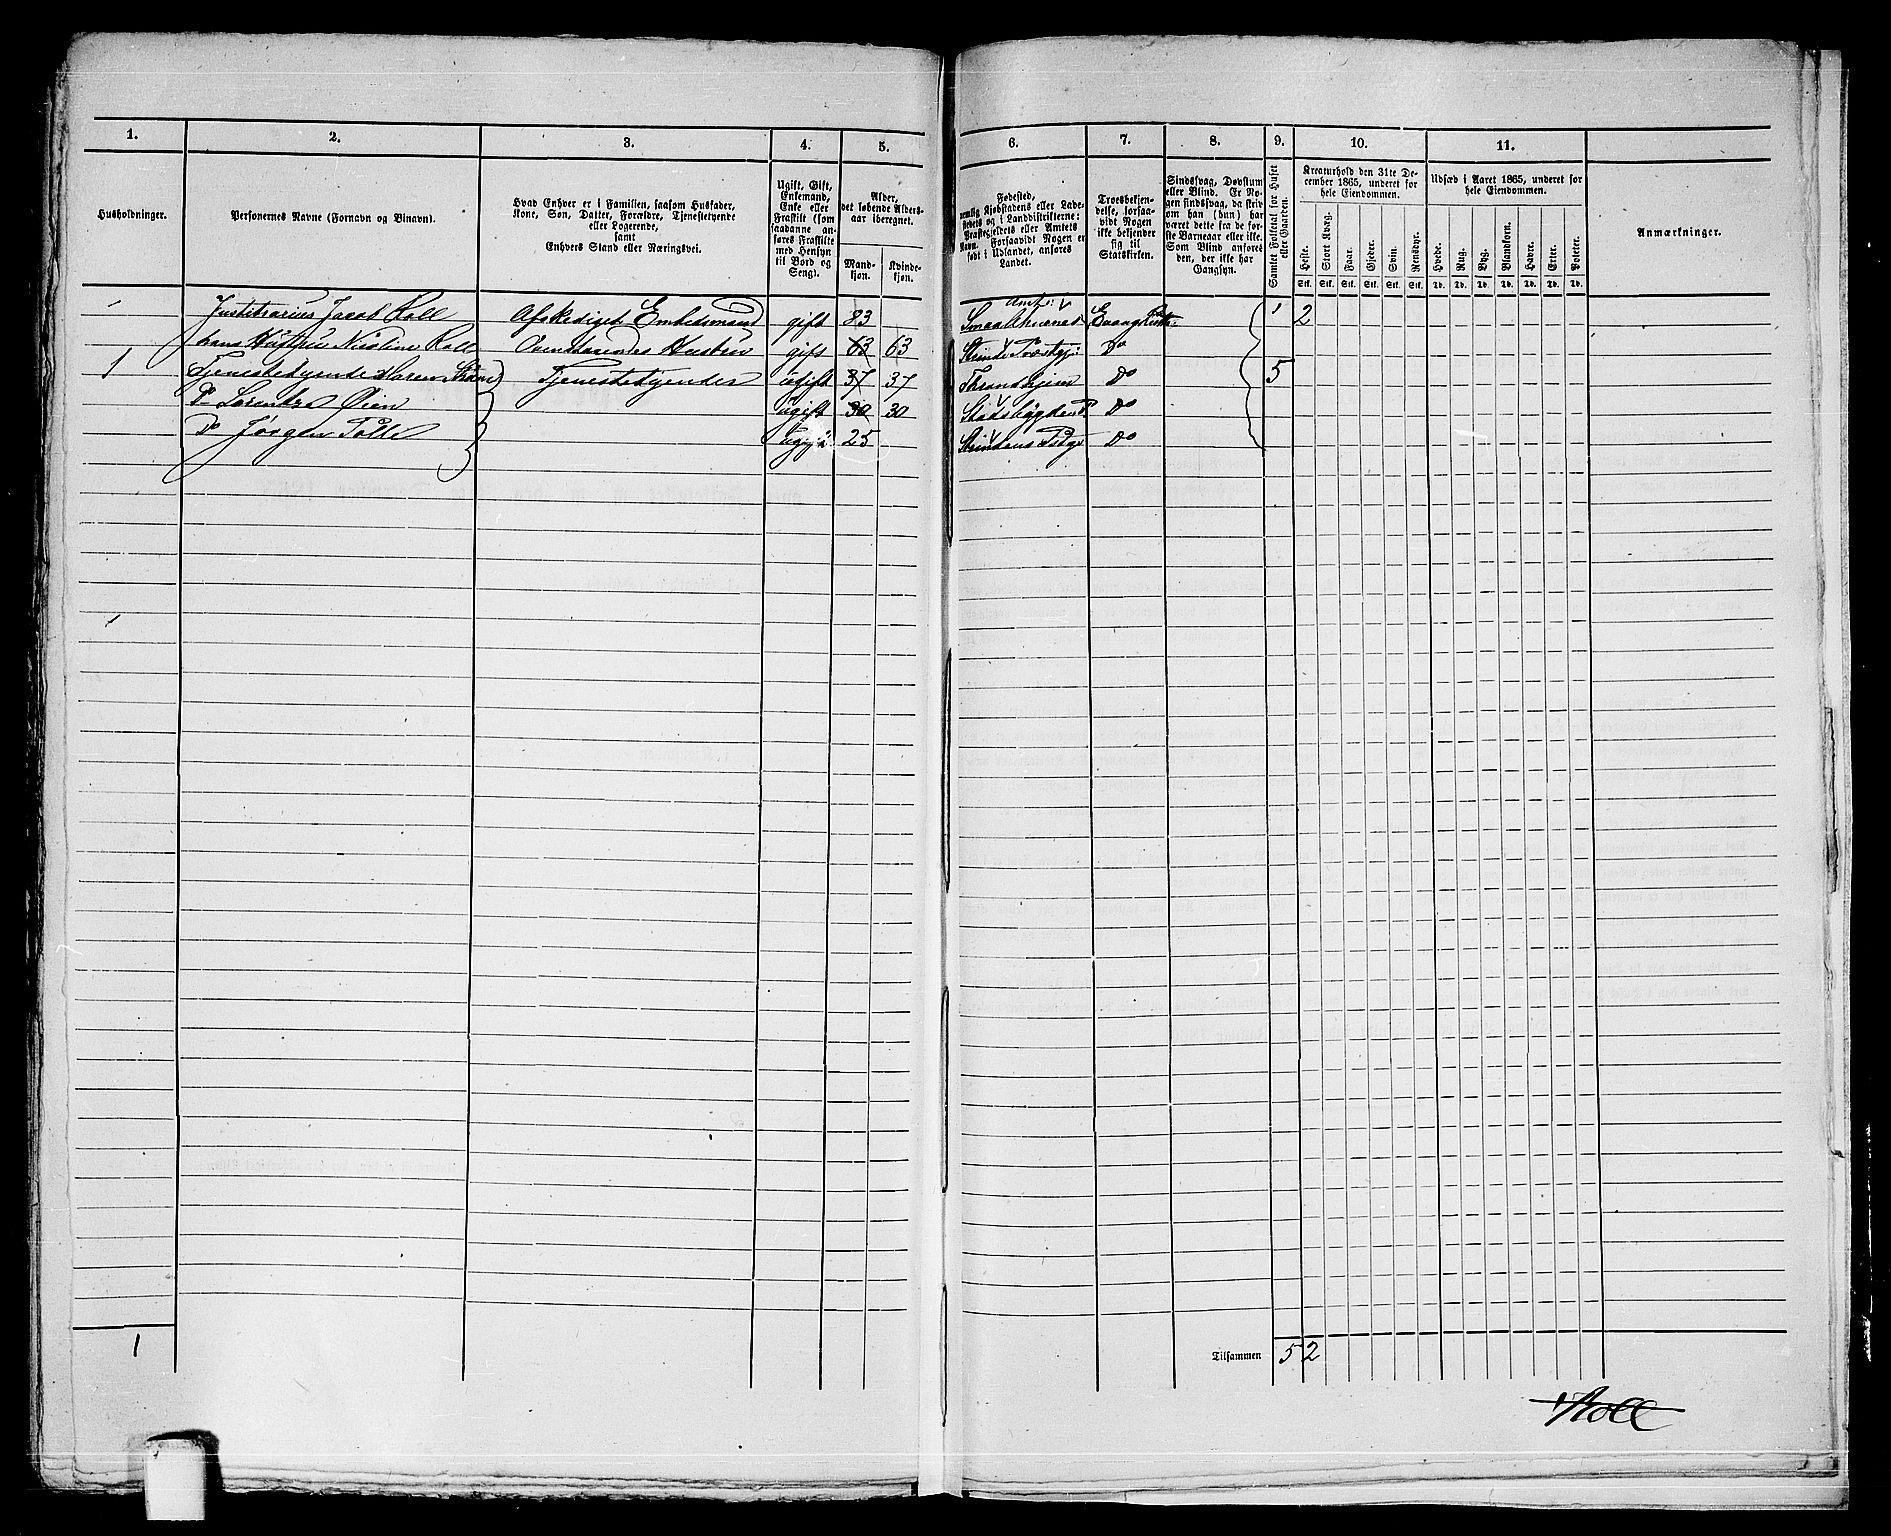 1.
2.
3.
4.
5.
6.
7.
8.
9.
10.
11.
Husholdninger.
Personernes Navne (Fornavn og Binavn).
Hvad Enhver er i Familien, saasom Husfader,
Kone, Søn, Datter, Forældre, Tjenestetyende
eller Logerende,
samt
Enhvers Stand eller Næringsvei.
Ugift, Gift,
Enkemand,
Enke eller
Fraskilt (som
saadanne an-
føres Fraskilte
med Hensyn
til Bord og
Seng).
Alder,
det løbende Alders-
aar iberegnet.
Mand-
kjøn.
Kvinde-
kjøn.
Fødested,
nemlig Kjøbstadens eller Lade-
stedets og i Landdistrikterne:
Præstegjeldets eller Amtets
Navn. Forsaavidt Nogen er
født i Udlandet, anføres
Landet.
Troesbekjen-
delse, forsaa-
vidt Nogen
ikke bekjender
sig til
Statskirken.
Sindssvag, Døvstum
eller Blind. Er No-
gen sindssvag, da skriv
om han (hun) har
været dette fra de før-
ste Barneaar eller ikke.
Som Blind anføres
den, der ikke har
Gangsyn.
Samlet Folketal for Huset
eller Gaarden.
Kreaturhold den 31te De-
cember 1865, underet for
hele Eiendommen.
Heste.
Stort Kvæg.
Faar.
Gjeder.
Svin.
Rensdyr.
Stk. Stk. Stk. Stk. Stk. Stk.
Udsæd i Aaret 1865, underet for
hele Eiendommen.
Hvede.
Rug.
Byg.
Blandkorn.
Havre.
Erter.
Poteter.
Td. Td. Td. Td. Td. Td. Td.
Anmærkninger.
Justitiarius Jacob Roll Afskediget Embedsmand gift 83 Amt: 2
hans Hustru Nicoline Roll Hustru gift 63 63 Do
1 Tjenestetyende Maren Tjenestetyender ugift 37 37 Throndhjem Do 5
Do Øien ugift 30 30 Do
Do Jørgen Tolle ugift 25 Do
1 Tilsammen 5 2
Roll